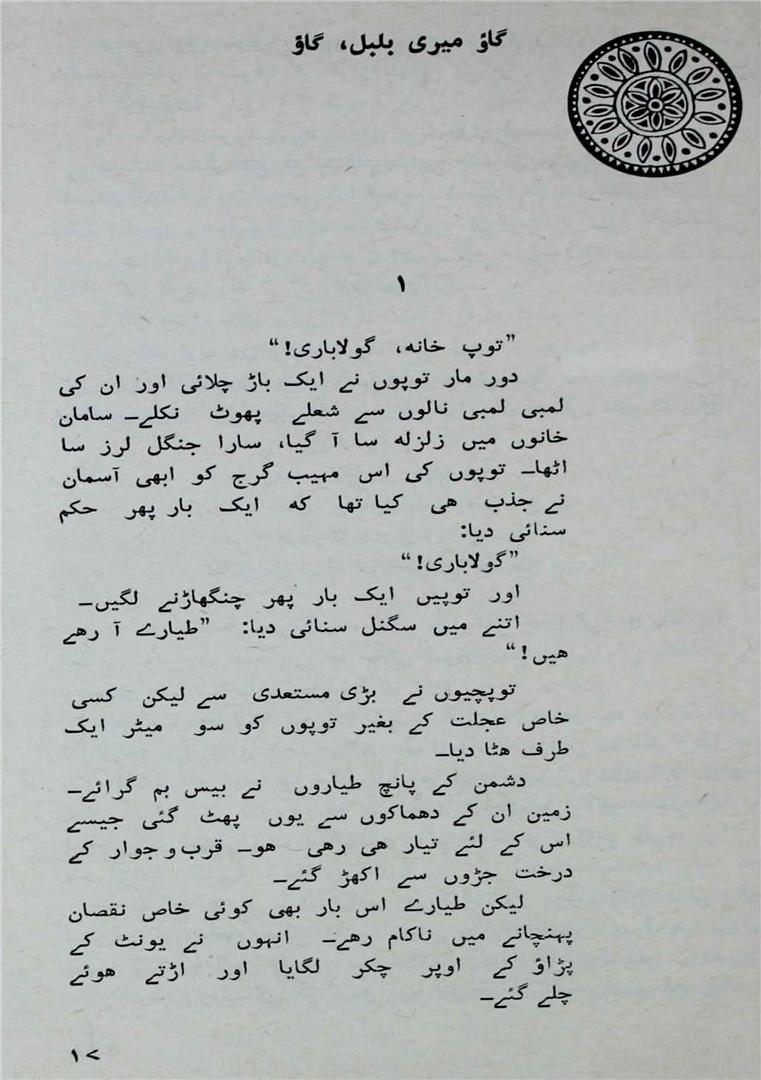 گاؤ میری بلبل، گاؤ
۱
”توپ خانہ، گولاباری!“
دور مار توپوں نے ایک باڑ چلائی اور ان کی
لمبی لمبی نالوں سے شعلے پھوٹ نکلے۔ سامان
خانوں میں زلزلہ سا آ گیا، سارا جنگل لرز سا
اٹھا۔ توپوں کی اس مہیب گرج کو ابھی آسمان
نے جذب ھی کیا تھا کہ ایک بار پھر حکم
سنائی دیا:
”گولاباری!“
اور توپیں ایک بار پھر چنگھاڑنے لگیں۔
اتنے میں سگنل سنائی دیا: ”طیارے آ رھے
ھیں!“
توپچیوں نے بڑی مستعدی سے لیکن کسی
خاص عجلت کے بغیر توپوں کو سو میٹر ایک
طرف ھٹا دیا۔
دشمن کے پانچ طیاروں نے بیس بم گرائے۔
زمین ان کے دھماکوں سے یوں پھٹ گئی جیسے
اس کے لئے تیار ھی رھی ھو۔ قرب و جوار کے
درخت جڑوں سے اکھڑ گئے۔
لیکن طیارے اس بار بھی کوئی خاص نقصان
پہنچانے میں ناکام رھے۔ انہوں نے یونٹ کے
پڑاؤ کے اوپر چکر لگایا اور اڑتے ھوئے
چلے گئے۔
۱۷